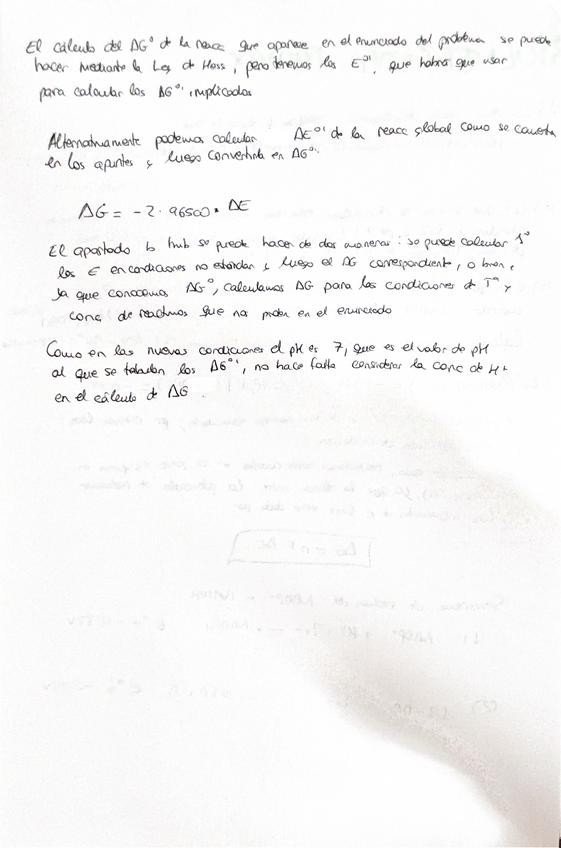 El cálculo del ΔG° de la reacc que aparece en el enunciado del problema se puede
hacer mediante la Ley de Hess, pero tenemos los E°', que habrá que usar
para calcular los ΔG°' implicados
Alternativamente podemos calcular ΔE°' de la reacc global como se comenta
en los apuntes y luego convertirla en ΔG°'
ΔG = -2·96500· ΔE
El apartado b tmb se puede hacer de dos maneras: se puede calcular 1°
los E en condiciones no estándar y luego el ΔG correspondiente, o bien,
ya que conocemos ΔG°, calculamos ΔG para las condiciones de Tª y
conc de reactivos que nos piden en el enunciado
Como en las nuevas condiciones el pH es 7, que es el valor de pH
al que se tabulan los ΔG°', no hace falta considerar la conc de H+
en el cálculo de ΔG.